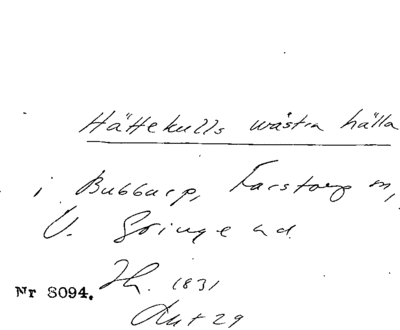 Hättekulls wästra hälla
i Bubbarp, Farstorp sn,
V. Göinge hd.
Nr 8094. Th. 1831
Aut 29